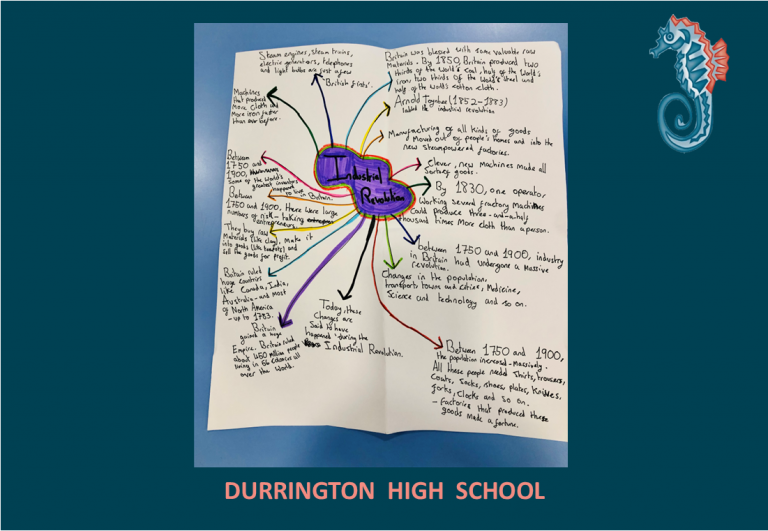 Steam engines, steam trains,
electric generators, telephones
and light bulbs are just a few
'British firsts'.
Britain was blessed with some valuable raw
Materials. By 1850, Britain produced two
thirds of the World's coal, half of the World's
iron, two thirds of the World's steel and
half of the World's cotton cloth.
Machines
that produced
more cloth and
more iron faster
than ever before.
Arnold Toynbee (1852-1883)
the industrial revolution
Manufacturing of all kinds of goods
Moved out of people's homes and into the
new steampowered factories.
Clever, new Machines made all
sorts of goods.
Industrial
Revolution
Between
1750 and
1900,
Some of the World's
greatest inventors
happened
to live in Britain.
By 1830, one operator
Working several factory Machines
Could produce three-and-a-half
thousand times More cloth than a person.
Between
1750 and 1900, there were large
numbers of risk-taking
entrepreneurs.
They buy raw
Materials (like clay), make it
into goods (like) and
sell the goods for profit.
between 1750 and 1900, industry
in Britain had undergone a Massive
revolution.
Changes in the population,
transport, towns and cities, Medicine,
Science and technology and so on.
Britain ruled
huge countries
like Canada, India,
Australia - and most
of North America
- up to 1783.
Britain
gained a huge
Empire. Britain ruled
about 450 million people
living in 56 all
over the World.
Today, these
changes are
Said to have
happened 'during the
Industrial Revolution.
Between 1750 and 1900,
the population increased - Massively.
All these people needed Shirts, trousers,
Coats, Socks, shoes, plates, Knives,
forks, Clocks and so on.
- Factories that produced these
goods made a fortune.
DURRINGTON HIGH SCHOOL